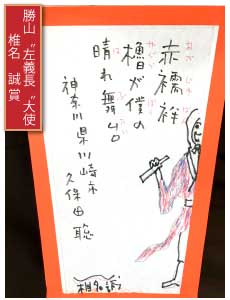 勝山〝左義長〟大使
椎名 誠賞
赤襦袢
櫓が僕の
晴れ舞台
神奈川県川崎市
久保田 聡
椎名誠